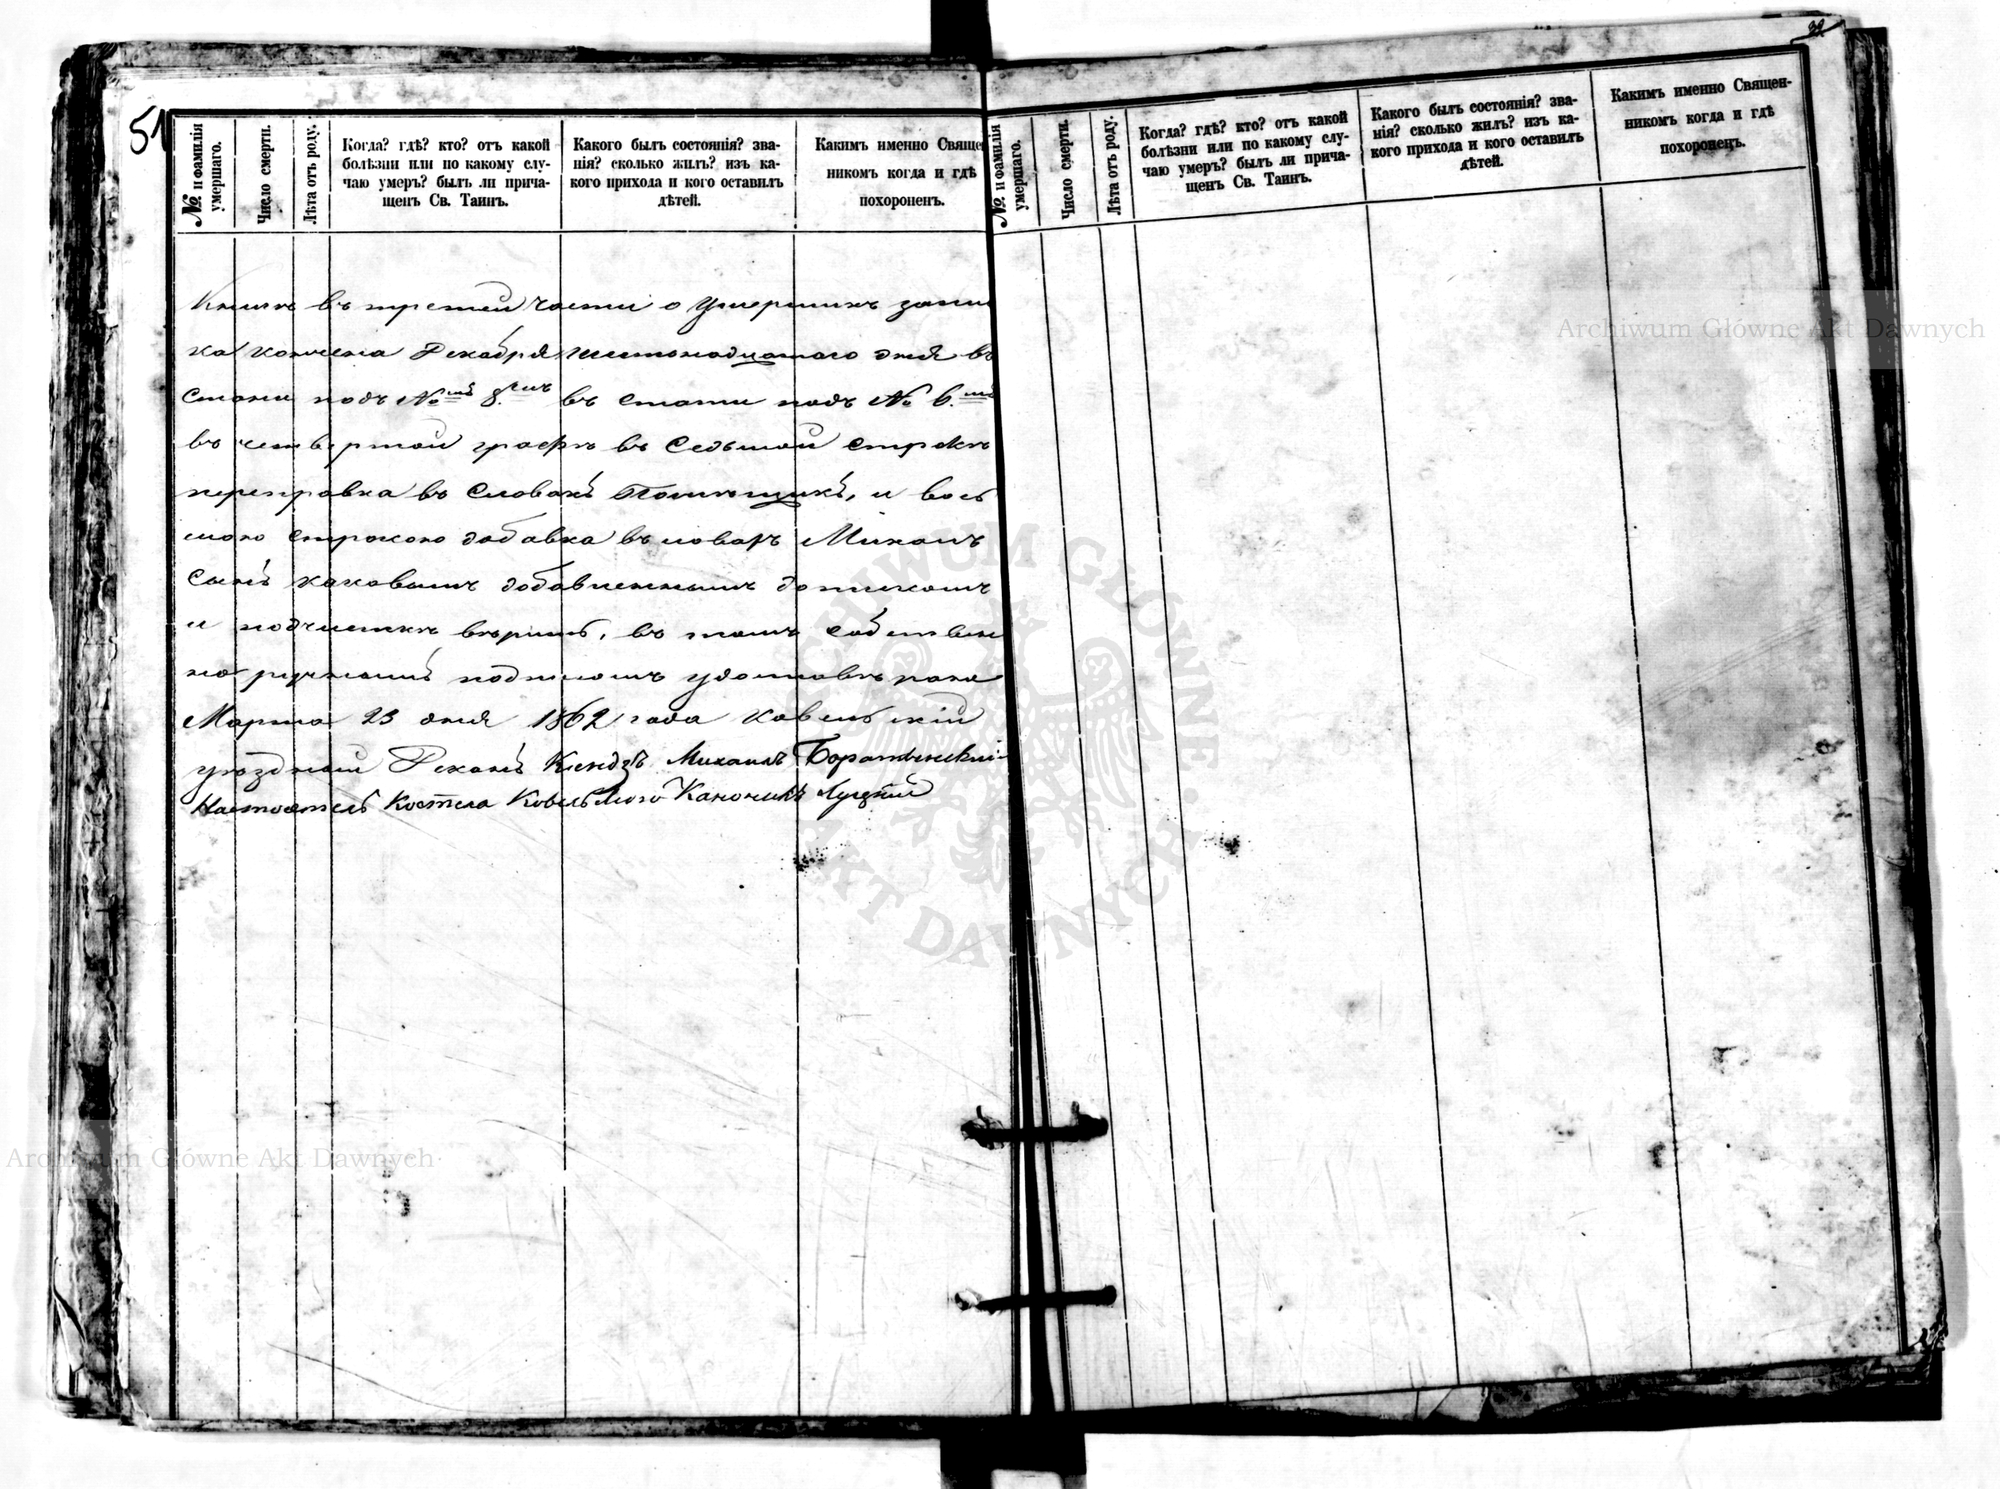 51
№ и фамилія
умершаго.
Число смерти.
Лѣта отъ роду.
Когда? гдѣ? кто? отъ какой
болѣзни или по какому слу-
чаю умеръ? былъ ли прича-
щенъ Св. Таинъ.
Какого былъ состоянія? зва-
нія? сколько жилъ? изъ ка-
кого прихода и кого оставилъ
дѣтей.
Каким именно Священ
никомъ когда и гдѣ
похороненъ.
въ третей части о Умершихъ запис
ка кончена Декабря шестонадцатого дня въ
подъ № 8. въ стати подъ № 6.
въ четвертой графѣ въ Седьмой строкѣ
переправка въ Словахъ Помѣщикъ, и вось
мою строкою добавка въ Михаилъ
Сынъ каковымъ добавленнымъ
и подчисткѣ вѣрить, въ томъ собствен
но ручнымъ подписомъ удостовѣряю
Марта 23 дня 1862 года Ковельскій
уѣздный Деканъ Ксендзъ Михаилъ
Настоятель Костела Ковельского Каноникъ Луцкій
№ и фамилія
умершаго.
Число смерти.
Лѣта отъ роду.
Когда? гдѣ? кто? отъ какой
болѣзни или по какому слу-
чаю умеръ? былъ ли прича-
щенъ Св. Таинъ.
Какого былъ состоянія? зва-
нія? сколько жилъ? изъ ка-
кого прихода и кого оставилъ
дѣтей.
Какимъ именно Священ-
никомъ когда и гдѣ
похороненъ.
Archiwum Główne Akt Dawnych
ARCHIWUM GŁÓWNE
AKT DAWNYCH
Archiwum Główne Akt Dawnych